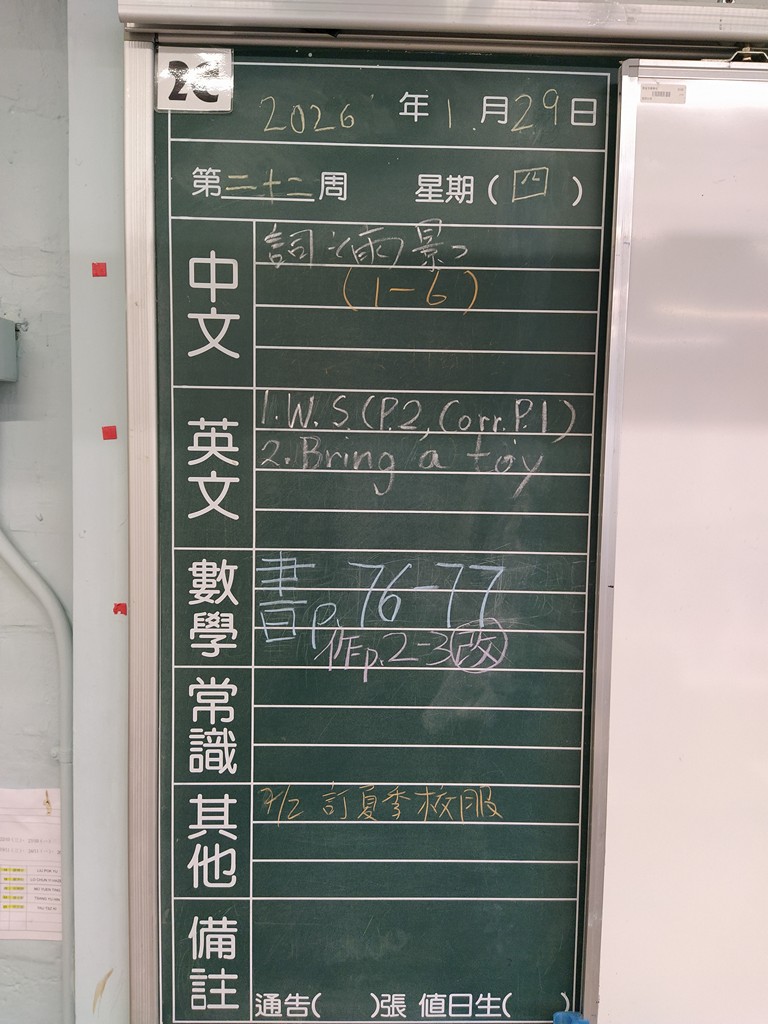 2C
2026 年 1 月 29 日
第 二十二 周 星期 ( 四 )
中文
詞:雨景
(1-6)
英文
1. W. S. (P.2, Corr. P.1)
2. Bring a toy
數學
書 p. 76-77
作 p. 2-3 改
常識
其他
/2 訂夏季校服
備註
通告( )張 值日生( )